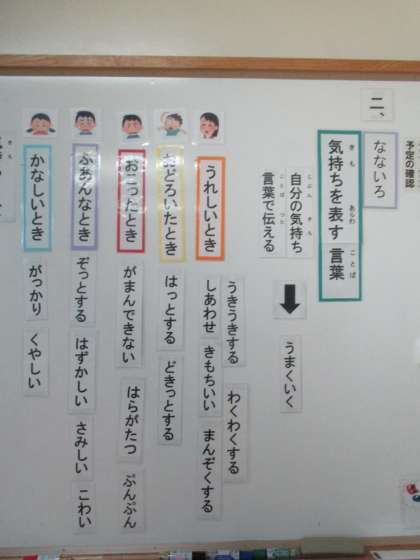 予定の確認
二、
なないろ
気持ちを表す言葉
自分の気持ち
言葉で伝える
うまくいく
うれしいとき
うきうきする
わくわくする
しあわせ
きもちいい
まんぞくする
おどろいたとき
はっとする
どきっとする
おこったとき
がまんできない
はらがたつ
ぷんぷん
ふあんなとき
ぞっとする
はずかしい
さみしい
こわい
かなしいとき
がっかり
くやしい